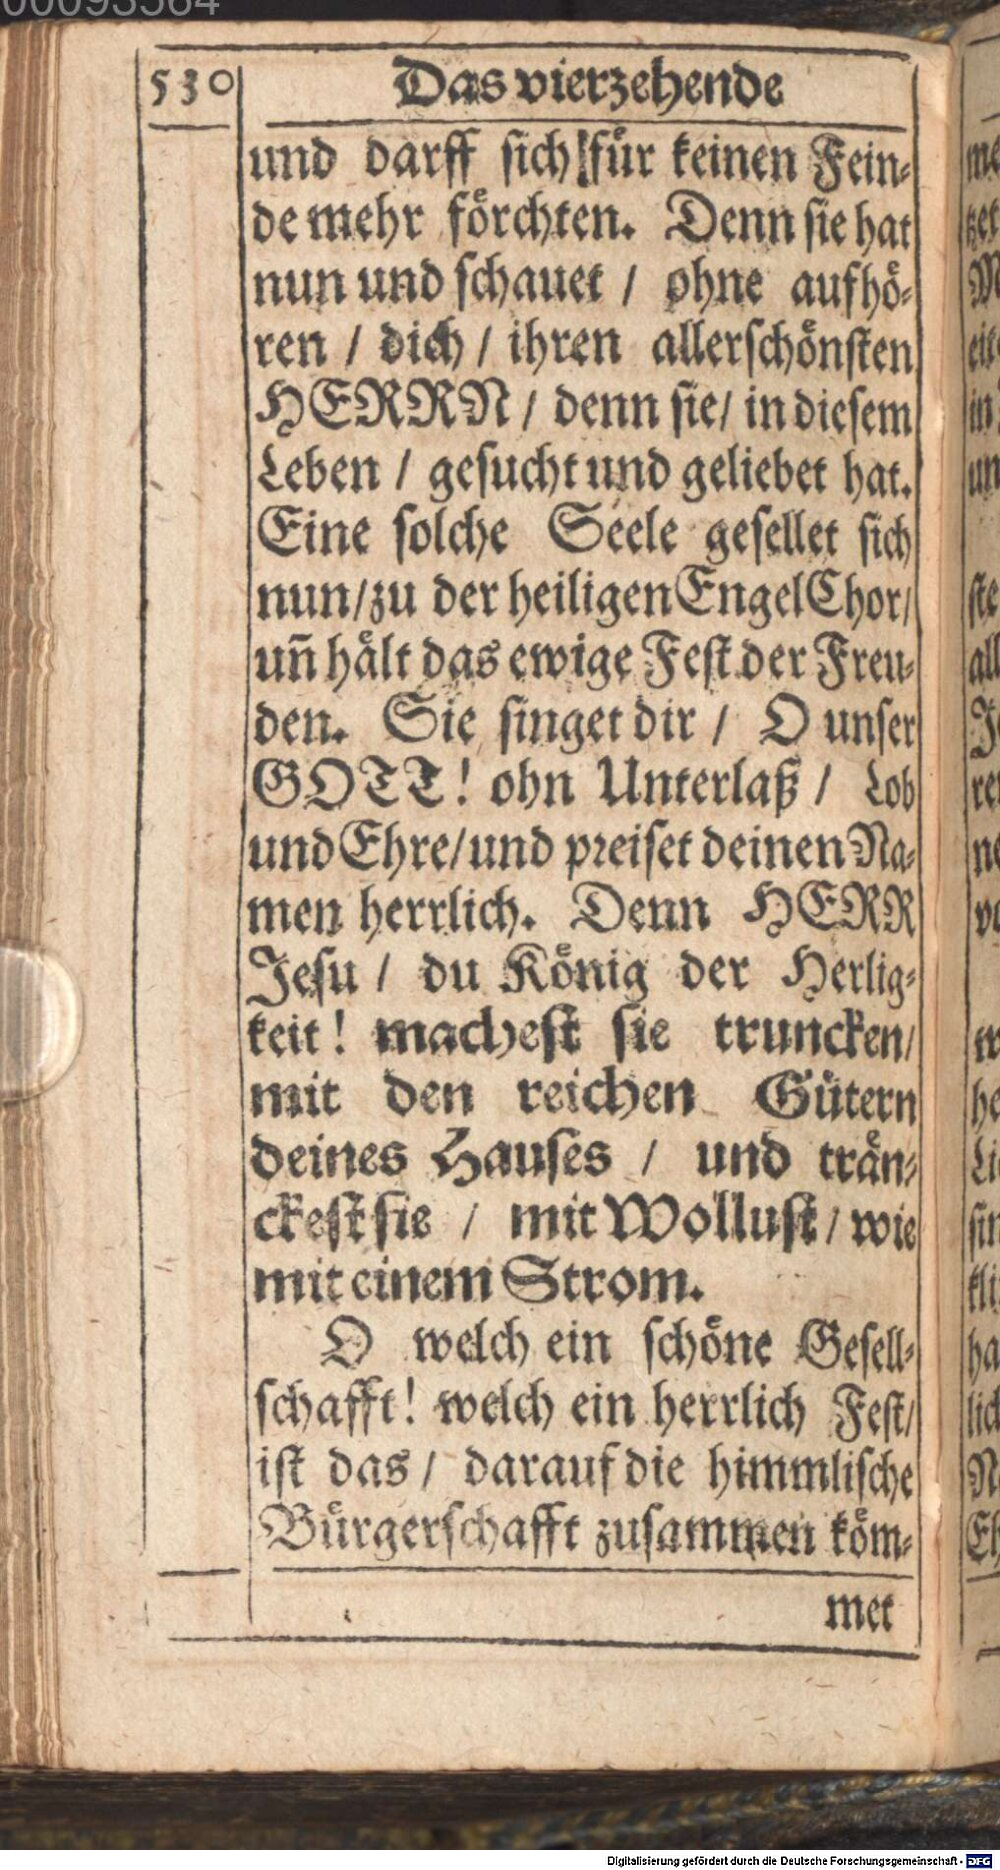 00093564
530
Das vierzehende
und darff sich für keinen Fein-
de mehr förchten. Denn sie hat
nun und schauet / ohne aufhö-
ren / dich / ihren allerschönsten
HERRN / denn sie / in diesem
Leben / gesucht und geliebet hat.
Eine solche Seele gesellet sich
nun / zu der heiligen Engel Chor /
uñ hält das ewige Fest der Freu-
den. Sie singet dir / O unser
GOTT! ohn Unterlaß / Lob
und Ehre / und preiset deinen Na-
men herrlich. Denn HERR
Jesu / du König der Herlig-
keit! machest sie truncken /
mit den reichen Gütern
deines Hauses / und trän-
ckest sie / mit Wollust / wie
mit einem Strom.
O welch ein schöne Gesell-
schafft! welch ein herrlich Fest /
ist das / darauf die himmlische
Bürgerschafft zusammen köm-
met
Digitalisierung gefördert durch die Deutsche Forschungsgemeinschaft - DFG